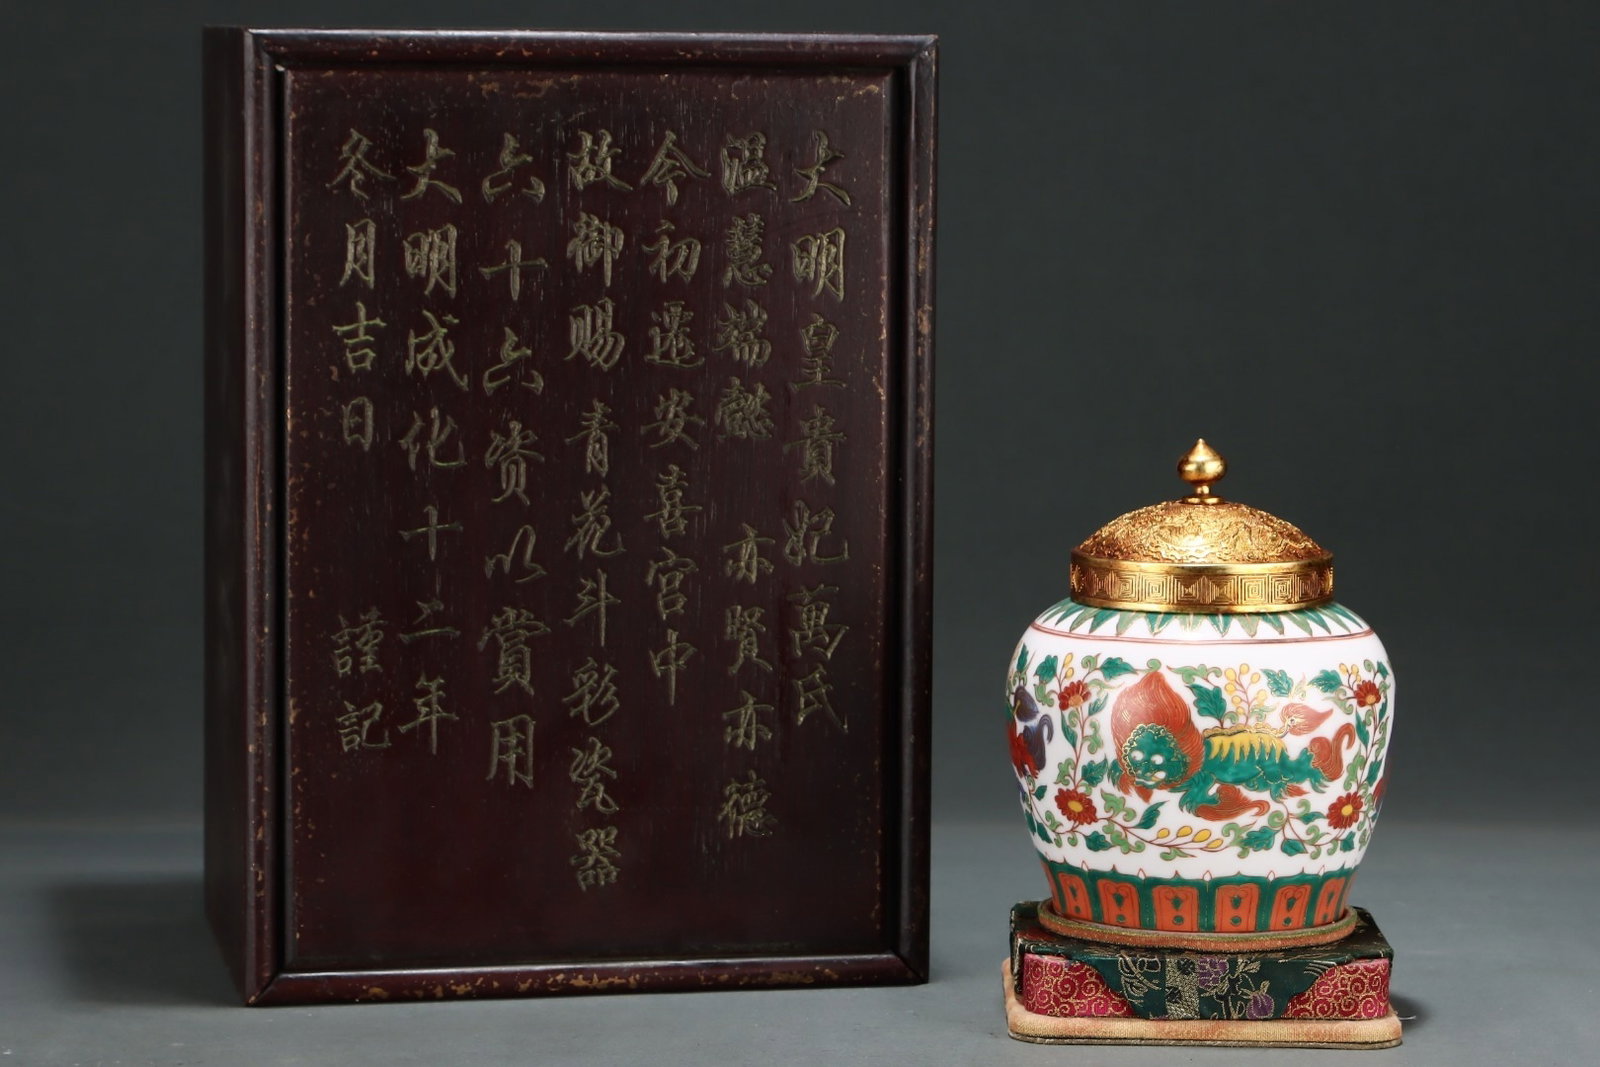 大明皇貴妃萬氏
溫慧端懿 亦賢亦德
今初遷安喜宮中
故御賜 青花斗彩瓷器
六十六资以賞用
大明成化十二年
冬月吉日 謹記